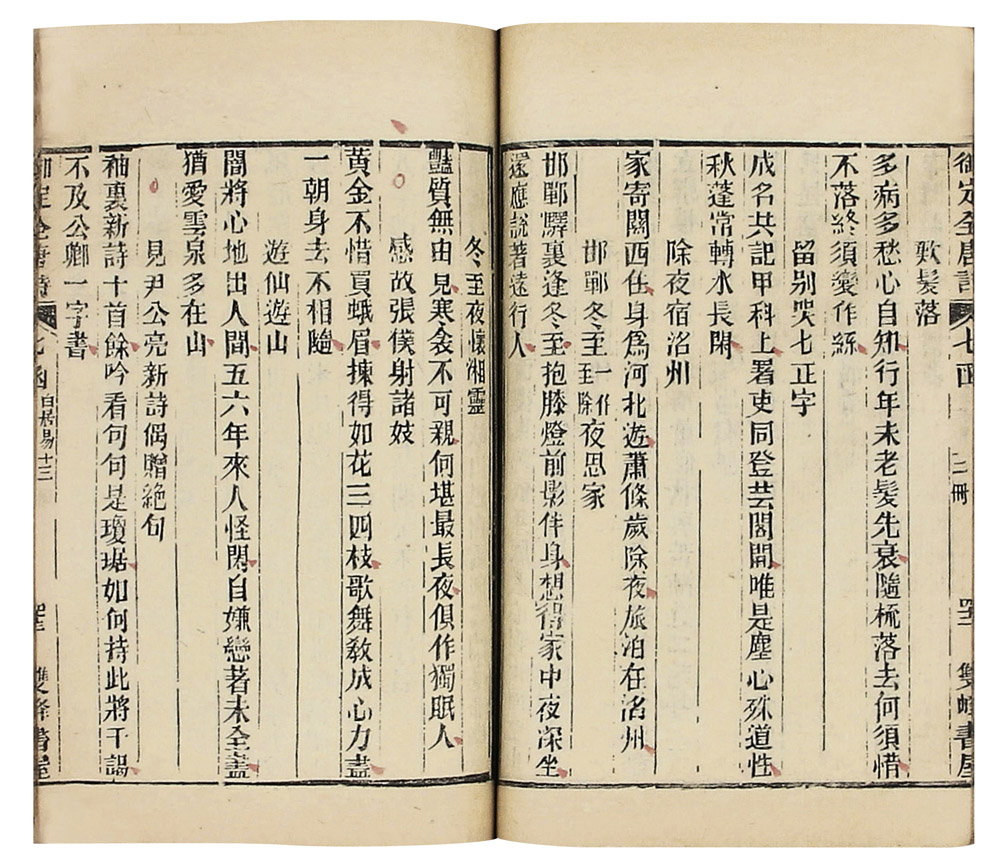 御定全唐詩 七函 三冊 雙峰書屋
歎髮落
多病多愁心自知行年未老髮先衰隨梳落去何須惜
不落終須變作絲
留別吳七正字
成名共記甲科上署吏同登芸閣間唯是塵心殊道性
秋蓬常轉水長閑
除夜宿洺州
家寄關西住身爲河北遊蕭條歲除夜旅泊在洺州
邯鄲冬至一作除至夜思家
邯鄲驛裏逢冬至抱膝燈前影伴身想得家中夜深坐
還應說著遠行人
冬至夜懷湘靈
豔質無由見寒衾不可親何堪最長夜俱作獨眠人
感故張僕射諸妓
黃金不惜買蛾眉揀得如花三四枝歌舞敎成心力盡
一朝身去不相隨
遊仙遊山
闇將心地出人間五六年來人怪閑自嫌戀著未全盡
猶愛雲泉多在山
見尹公亮新詩偶贈絶句
袖裏新詩十首餘吟看句句是瓊琚如何持此將干謁
不及公卿一字書
御定全唐詩 七函 白居易十三 雙峰書屋